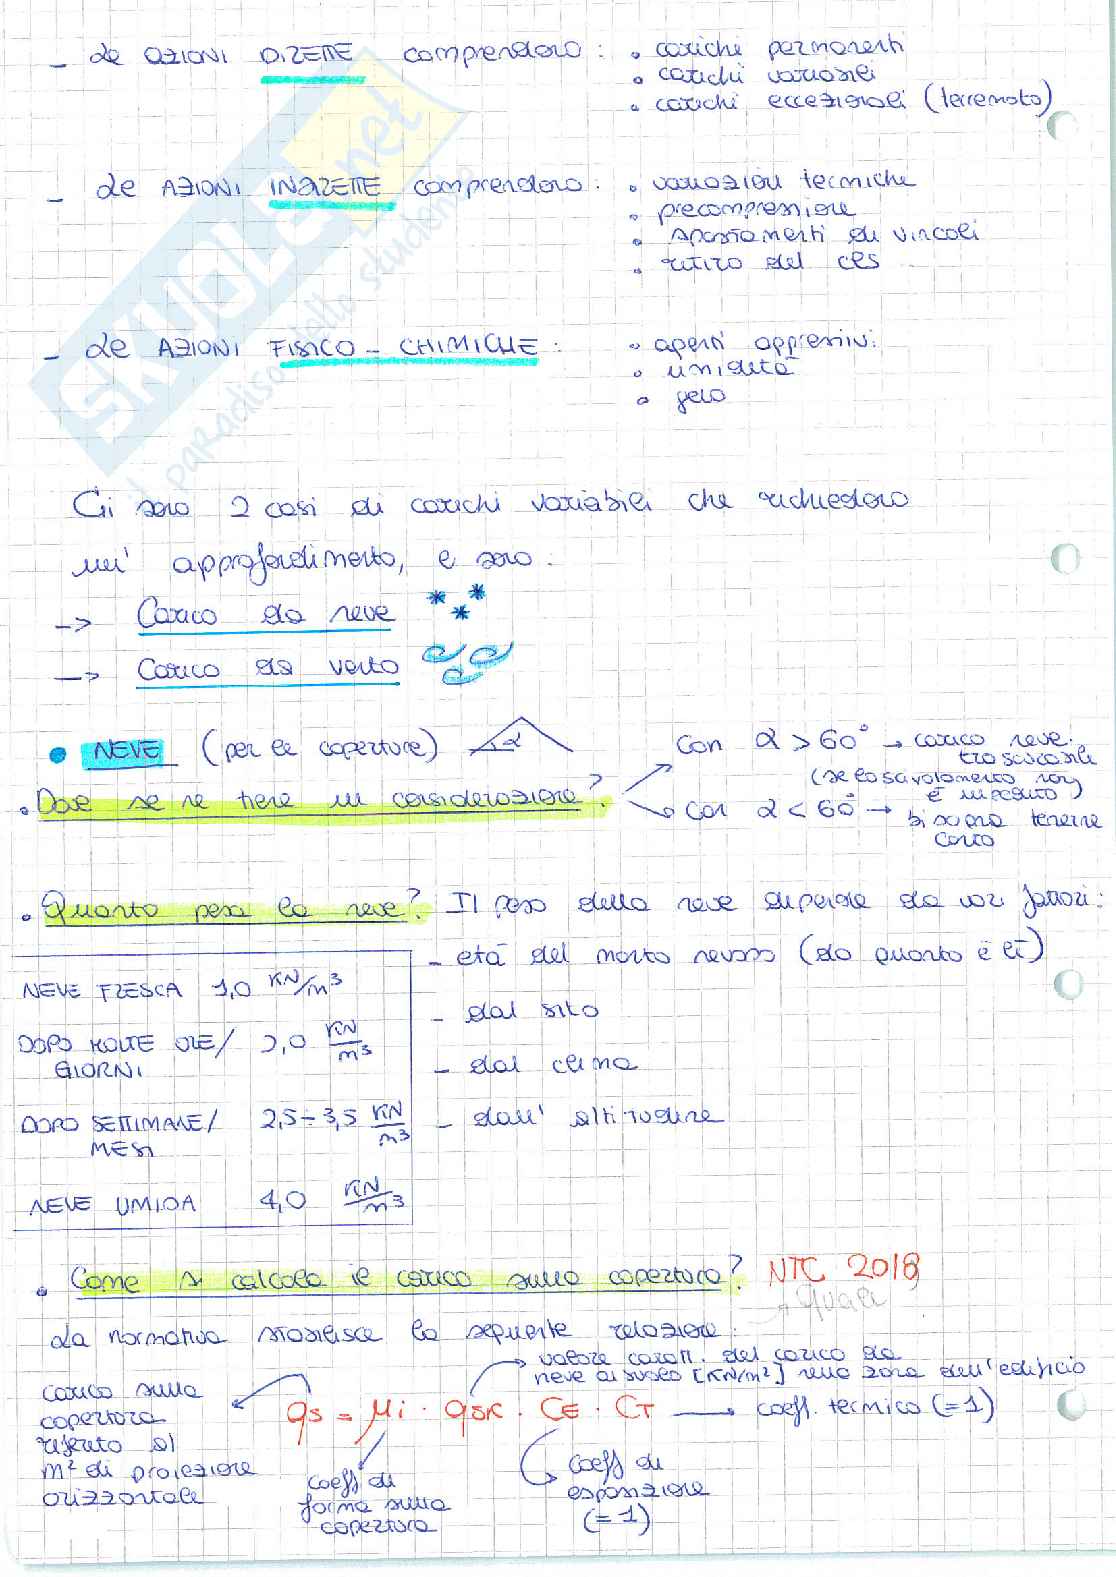 - Le AZIONI DIRETTE comprendono: • carichi permanenti
• carichi variabili
• carichi eccezionali (terremoto)
- Le AZIONI INDIRETTE comprendono: • variazioni termiche
• precompressione
• spostamenti di vincoli
• ritiro del cls
- Le AZIONI FISICO-CHIMICHE: • agenti aggressivi:
• umidità
• gelo
SKUOLA.net
il paradiso dello studente
Ci sono 2 casi di carichi variabili che richiedono
un' approfondimento, e sono:
-> Carico da neve
-> Carico da vento
• NEVE (per le coperture) α
con α > 60° → carico neve:
trascurabile
(se lo scivolamento non
è impedito)
• Dove se ne tiene in considerazione?
con α < 60° → bisogna tenerne
conto
• Quanto pesa la neve? Il peso della neve dipende da vari fattori:
- età del manto nevoso (da quanto è lì)
- dal sito
- dal clima
- dall' altitudine
NEVE FRESCA 1,0 KN/m³
DOPO MOLTE ORE/ 2,0 KN/m³
GIORNI
DOPO SETTIMANE/ 2,5÷3,5 KN/m³
MESI
NEVE UMIDA 4,0 KN/m³
• Come si calcola il carico sulla copertura? NTC 2018
La normativa stabilisce la seguente relazione:
valore caratt. del carico da
neve al suolo [KN/m²] nella zona dell'edificio
carico sulla
copertura
riferito al
m² di proiezione
orizzontale
qs = μi · qsk · CE · CT → coeff. termico (=1)
coeff di
forma sulla
copertura
coeff di
esposizione
(=1)